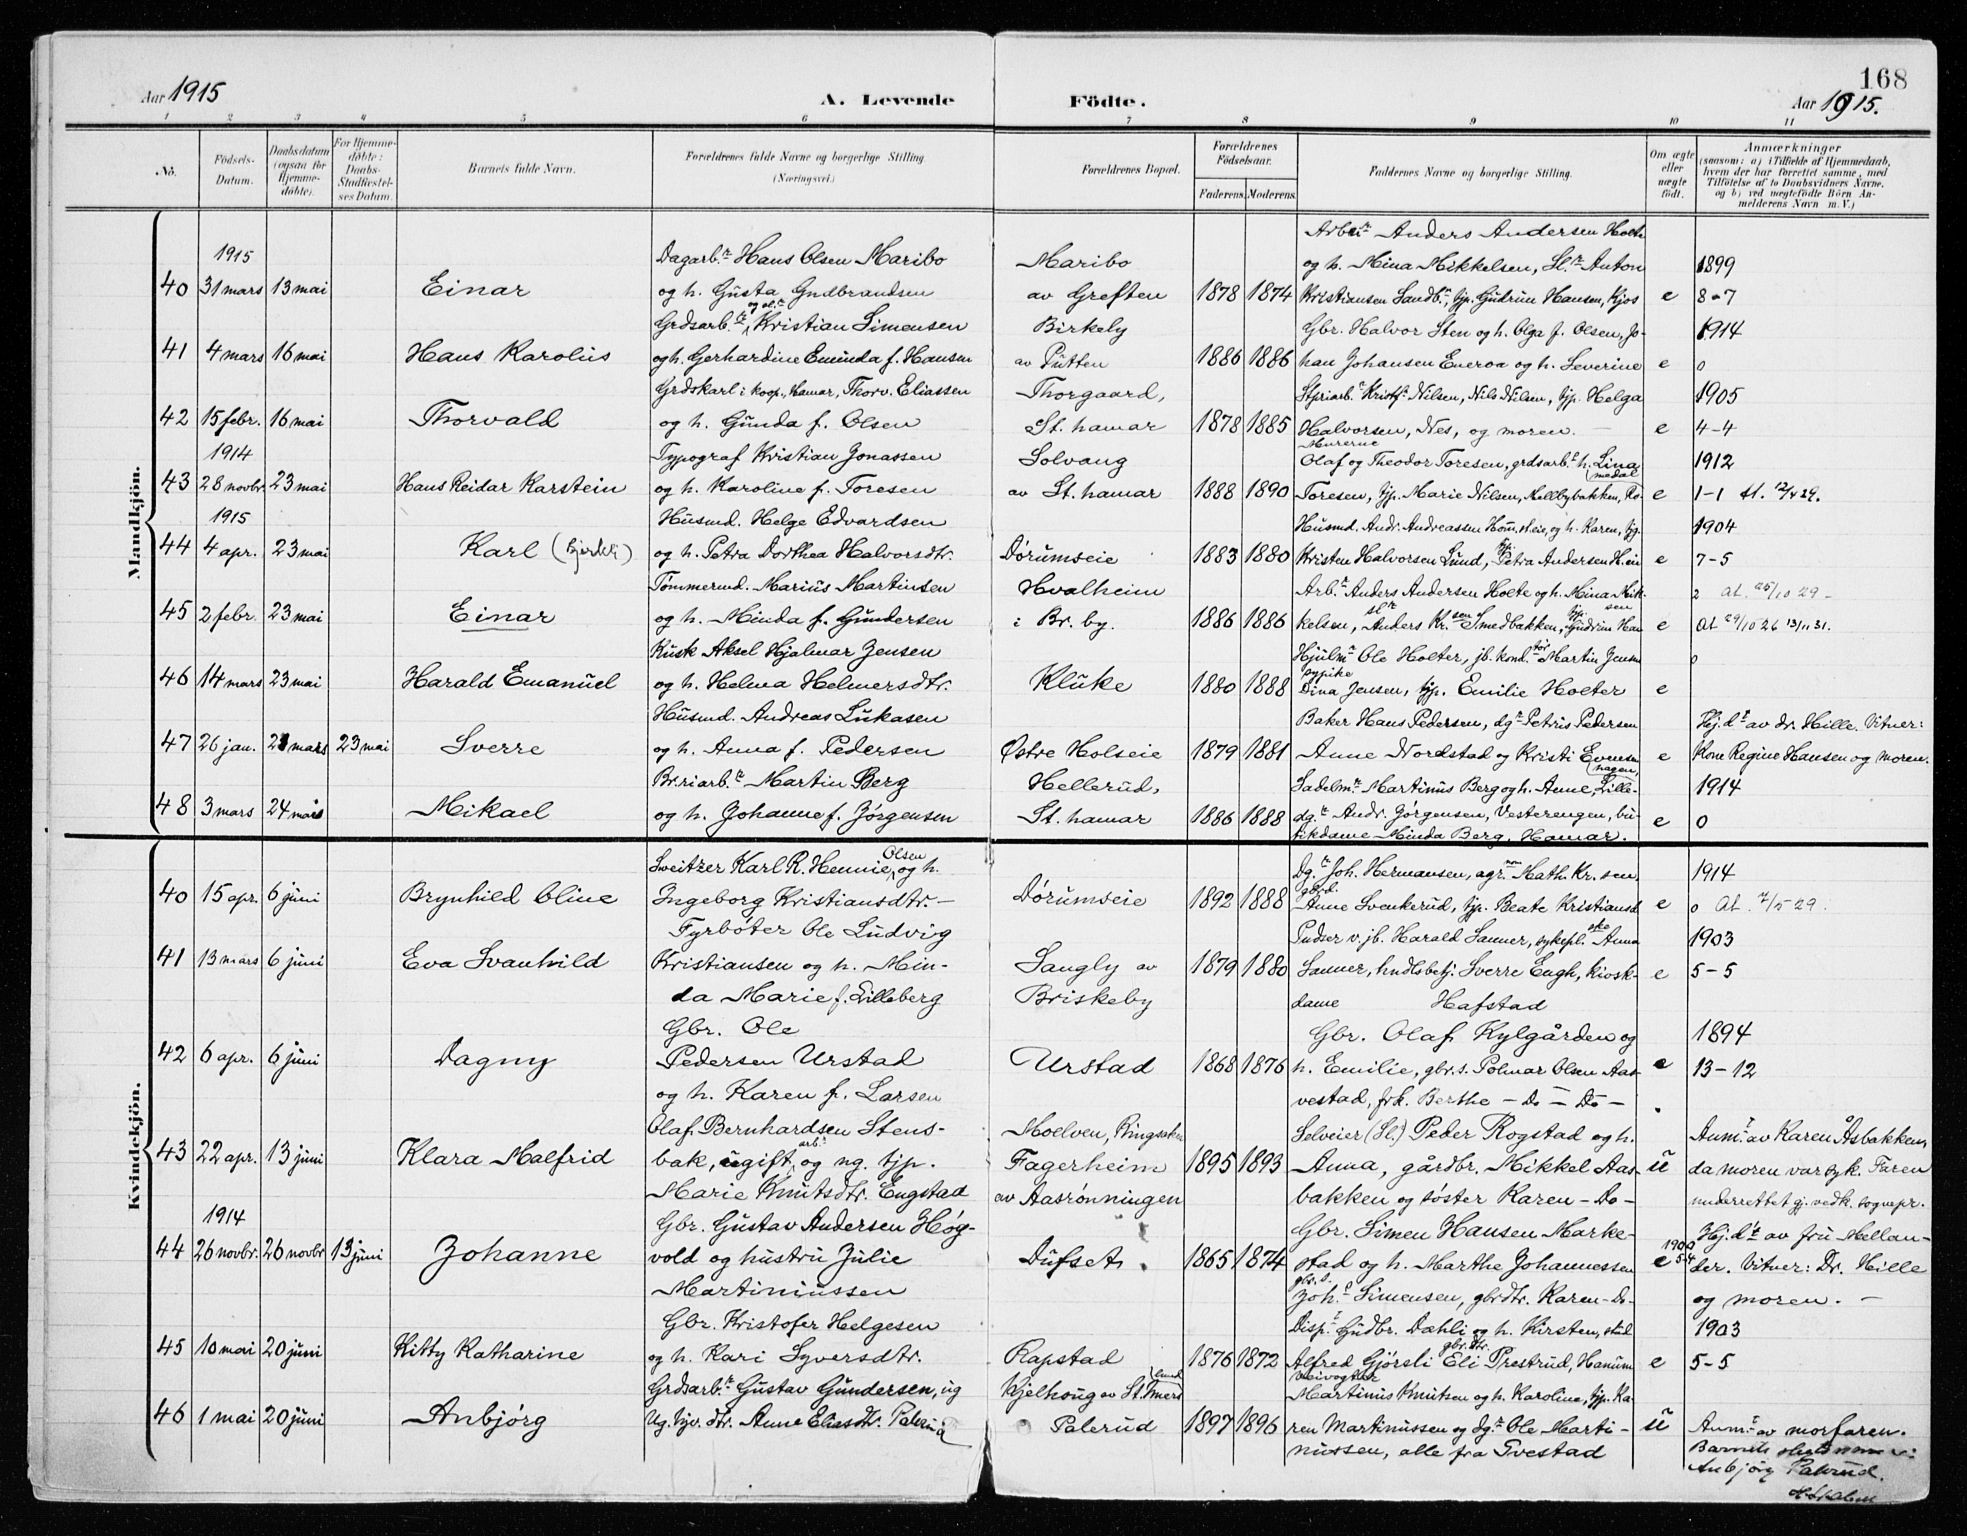 168
Aar 1915
A. Levende Fødte.
Aar 1915.
1 2 3 4 5 6 7 8 9 10 11
No.
Fødsels-Datum.
Daabsdatum (ogsaa for Hjemmedøbte).
For Hjemmedøbte: Daabs-Stadfæstelses Datum.
Barnets fulde Navn.
Forældrenes fulde Navne og borgerlige Stilling
(Næringsvei.)
Forældrenes Bopæl.
Forældrenes Fødselsaar.
Faderens. Moderens.
Faddernes Navne og borgerlige Stilling.
Om ægte eller uægte født.
Anmærkninger
(saasom: a) i Tilfælde af Hjemmedaab, hvem der har forrettet samme, med Tilføielse af to Daabsvidners Navne, og b) ved uegtefødte Børn Anmelderens Navn m. V.)
Mandkjøn.
1915
40 31 mars 13 mai Einar
Dagarb.r Hans Olsen Maribo
og h. Gusta Gudbrandsen
Maribo
av Greften
1878 1874
Arb.r Anders Andersen Holte
og h. Mina Mikkelsen, Sl.r Anton
Kristiansen Sandb., tjp. Gudrun Hansen, Kjos
e
1899
8-7
41 4 mars 16 mai Hans Karolius
Grdsarb. og sl.r Kristian Simensen
og h. Gerhardine Eminda f. Hansen
Birkely
av Putten
1886 1886
Gbr. Halvor Sten og h. Olga f. Olsen, Jo-
han Johansen Eneroa og h. Severine
e
1914
0
42 15 febr. 16 mai Thorvald
Grdskarl i koop., Hamar, Thorv. Eliassen
og h. Gunda f. Olsen
Thorgaard,
St. hamar
1878 1885
Spriarb. Kristf. Nilsen, Nils Nilsen, tjp. Helga
Halvorsen, Nes, og moren. —
e
1905
4-4
1914
43 28 novbr. 23 mai Hans Reidar Karstein
Typograf Kristian Jonassen
og h. Karoline f. Toresen
Solvang
av St. hamar
1888 1890
Murerne
Olaf og Theodor Toresen, grdsarb. h. Lina
Toresen, tjp. Marie Nilsen, Mellbybakken, Ro-
medal
e
1912
1-1 At. 12/4 29.
1915
44 4 apr. 23 mai Karl
Husmd. Helge Edvardsen
og h. Petra Dorthea Halvorsdtr.
Dørumseie
1883 1880
Husmd. Andr. Andreassen Hom. st. eie, og h. Karen, tjg.
Kristen Halvorsen Lund, tjp. Petra Andersen H. ei
e
1904
7-5
45 2 febr. 23 mai Einar
Tømmermd. Marius Martinsen
og h. Minda f. Gundersen
Hvalheim
i Br. by.
1886 1886
Arb.r Anders Andersen Holte og h. Mina Mik-
kelsen, sl.r Anders Kr.sen Smedbakken, tjp. Gudrun Hansen
e
2 At. 25/10 29 -
At 29/10 26 13/11 31.
46 14 mars 23 mai Harald Emanuel
Kusk Aksel Hjalmar Jensen
og h. Helma Helmersdtr.
Kluke
1880 1888
Hjulm.r Ole Holter, jb. kond.tør Martin Jensen
sypike
Dina Jensen, tjp. Emilie Holter
e
0
47 26 jan. 2 mars 23 mai Sverre
Husmd. Andreas Lukasen
og h. Anna f. Pedersen
Østre Holseie
1879 1881
Baker Hans Pedersen, dg.r Petris Pedersen
Anne Nordstad og Kristi Evensen
e
Hj. d.t av dr. Hille. Vitner:
Kone Regine Hansen og moren.
48 3 mars 24 mars Mikael
Br.riarb.r Martin Berg
og h. Johanne f. Jørgensen
Hellerud,
St. hamar
1886 1888
Sadelm.r Martinus Berg og h. Anne, Lille-
hagen,
dg.r Andr. Jørgensen, Vesterengen, bu-
tikdame Minda Berg, Hamar.
e
1914
0
Kvindekjøn.
40 15 apr. 6 juni Brynhild Oline
Sveitzer Karl R. Hennie Olsen, og h.
Ingeborg Kristiansdtr. —
Dørumseie
1892 1888
Dg.r Joh. Hermansen, agr.nom Math. Kr. sen,
gbrd.
Anne Svenkerud, tjp. Beate Kristiansd
e
1914
0 At. 7/5 29.
41 13 mars 6 juni Eva Svanhild
Fyrbøter Ole Ludvig
Kristiansen og h. Min-
da Marie f. Lilleberg
Sangly av
Briskeby
1879 1880
Pudser v. jb. Harald Sanner, sykepl.ske Anna
Sanner, hndlsbetj. Sverre Engh, kiosk-
dame Hafstad
e
1903
5-5
42 6 apr. 6 juni Dagny
Gbr. Ole
Pedersen Urstad
og h. Karen f. Larsen
Urstad
1868 1876
Gbr. Olaf Kylgården og
h. Emilie, gbr.s. Polmar Olsen Aas-
vestad, frk. Berthe — Do — Do —
e
1894
13-12
43 22 apr. 13 juni Klara Malfrid
Olaf Bernhardsen Stens-
bak, ugift arb.r, og ug. tjp.
Marie Knutsdtr. Engstad
Moelven, Ringsaker
Fagerheim
av Aasrønningen
1895 1893
Selveier (Sl.) Peder Rogstad og h.
Anna, gårdbr. Mikkel Aas-
bakken og søster Karen — Do —
ü
Anm.t av Karen Åsbakken,
da moren var syk. Faren
underrettet gj. vedk. sogvepr.
1914
44 26 novbr. 26 novbr 13 juni Johanne
Gbr. Gustav Andersen Høg-
vold og hustru Julie
Martiniussen
Dufset
1865 1874
Gbr. Simen Hansen Marke-
stad og h. Marthe Johannessen
gbr. s.
Joh. Simensen, gbrdtr. Karen — Do —
e
1900
5-4
Hj. d.t av fru Mellan-
der. Vitner: Dr. Hille
og moren. —
45 10 mai 20 juni Kitty Katharine
Gbr. Kristofer Helgesen
og h. Kari Syversdtr.
Rapstad
1876 1872
Disp. Gudbr. Dæhli og h. Kirsten, stud
Alfred Gjørsli gbr.dtr. Eli Prestrud, Hanum
e
1903
5-5
46 1 mai 20 juni Anbjørg
Grdsarb.r Gustav Gundersen, ug
Ug. hjv. dtr. Anne Eliasdtr. Palerud
Kjelhoug av St.
Palerud
1897 1896
Veivogter
Martinus Knutsen og h. Karoline, tjp. Ka-
ren Martinussen og dg.r Ole Marti-
nussen, alle fra Tvestad
ü
Anm.t av morfaren.
Barnets
Anbjørg Palerud.